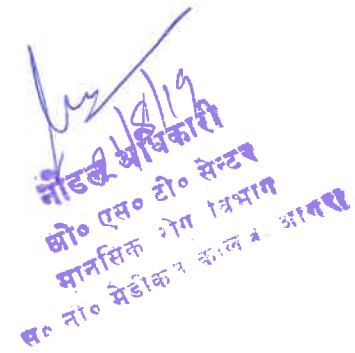 /8/19
नोडल अधिकारी
ओ० एस० टी० सेन्टर
मानसिक रोग विभाग
स० ना० मेडीकल कालेज, आगरा